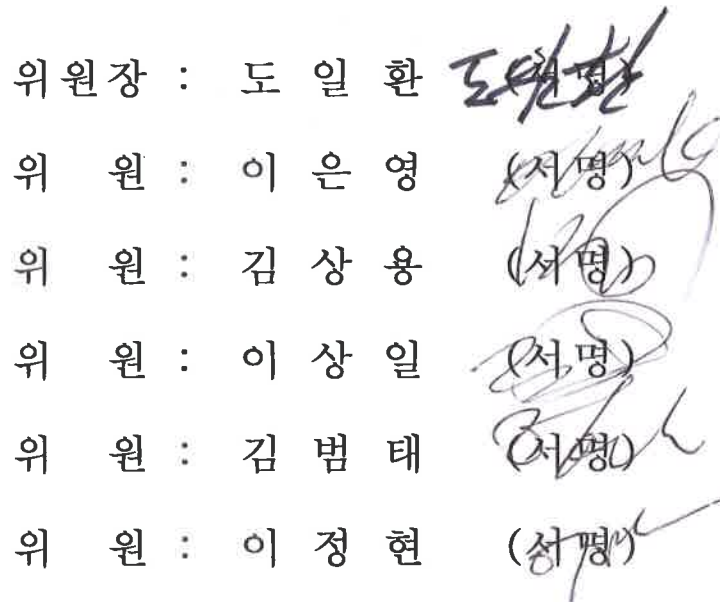 위원장 : 도 일 환 (서명)
위 원 : 이 은 영 (서명)
위 원 : 김 상 용 (서명)
위 원 : 이 상 일 (서명)
위 원 : 김 범 태 (서명)
위 원 : 이 정 현 (서명)